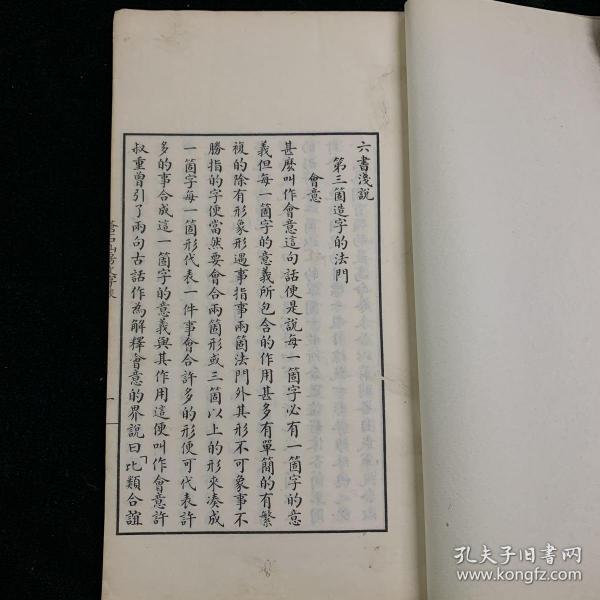 六書淺說
第三箇造字的法門
會意
甚麼叫作會意這句話便是說每一箇字必有一箇字的意
義但每一箇字的意義所包含的作用甚多有單簡的有繁
複的除有形象形遇事指事兩箇法門外其形不可象事不
勝指的字便當然要會合兩箇形或三箇以上的形來湊成
一箇字每一箇形代表一件事會合許多的形便可代表許
多的事合成這一箇字的意義與其作用這便叫作會意許
叔重曾引了兩句古話作為解釋會意的界說曰「比類合誼
一
孔夫子旧書网
www.kongfz.com